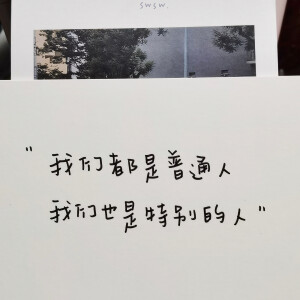 swsw.
"我们都是普通人
我们也是特别的人"